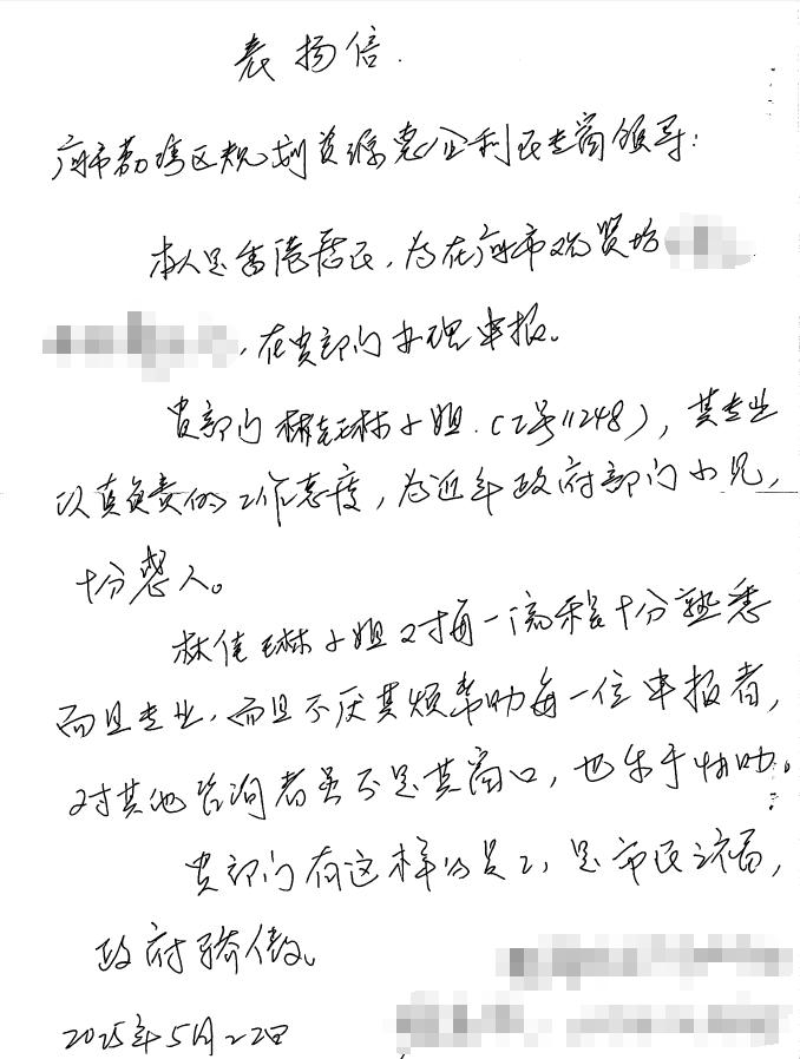 表扬信.
广州市荔湾区规划资源惠企利民专窗领导:
本人是香港居民,为在广州市观贤坊
,在贵部门办理申报。
贵部门林佳琳小姐.(工号11248),其专业
认真负责的工作态度,为近年政府部门少见,
十分惹人。
林佳琳小姐对每一流程十分熟悉
而且专业,而且不厌其烦帮助每一位申报者,
对其他咨询者虽不是其窗口,也乐于协助。
贵部门有这样的员工,是市民之福,
政府骄傲。
2025年5月22日